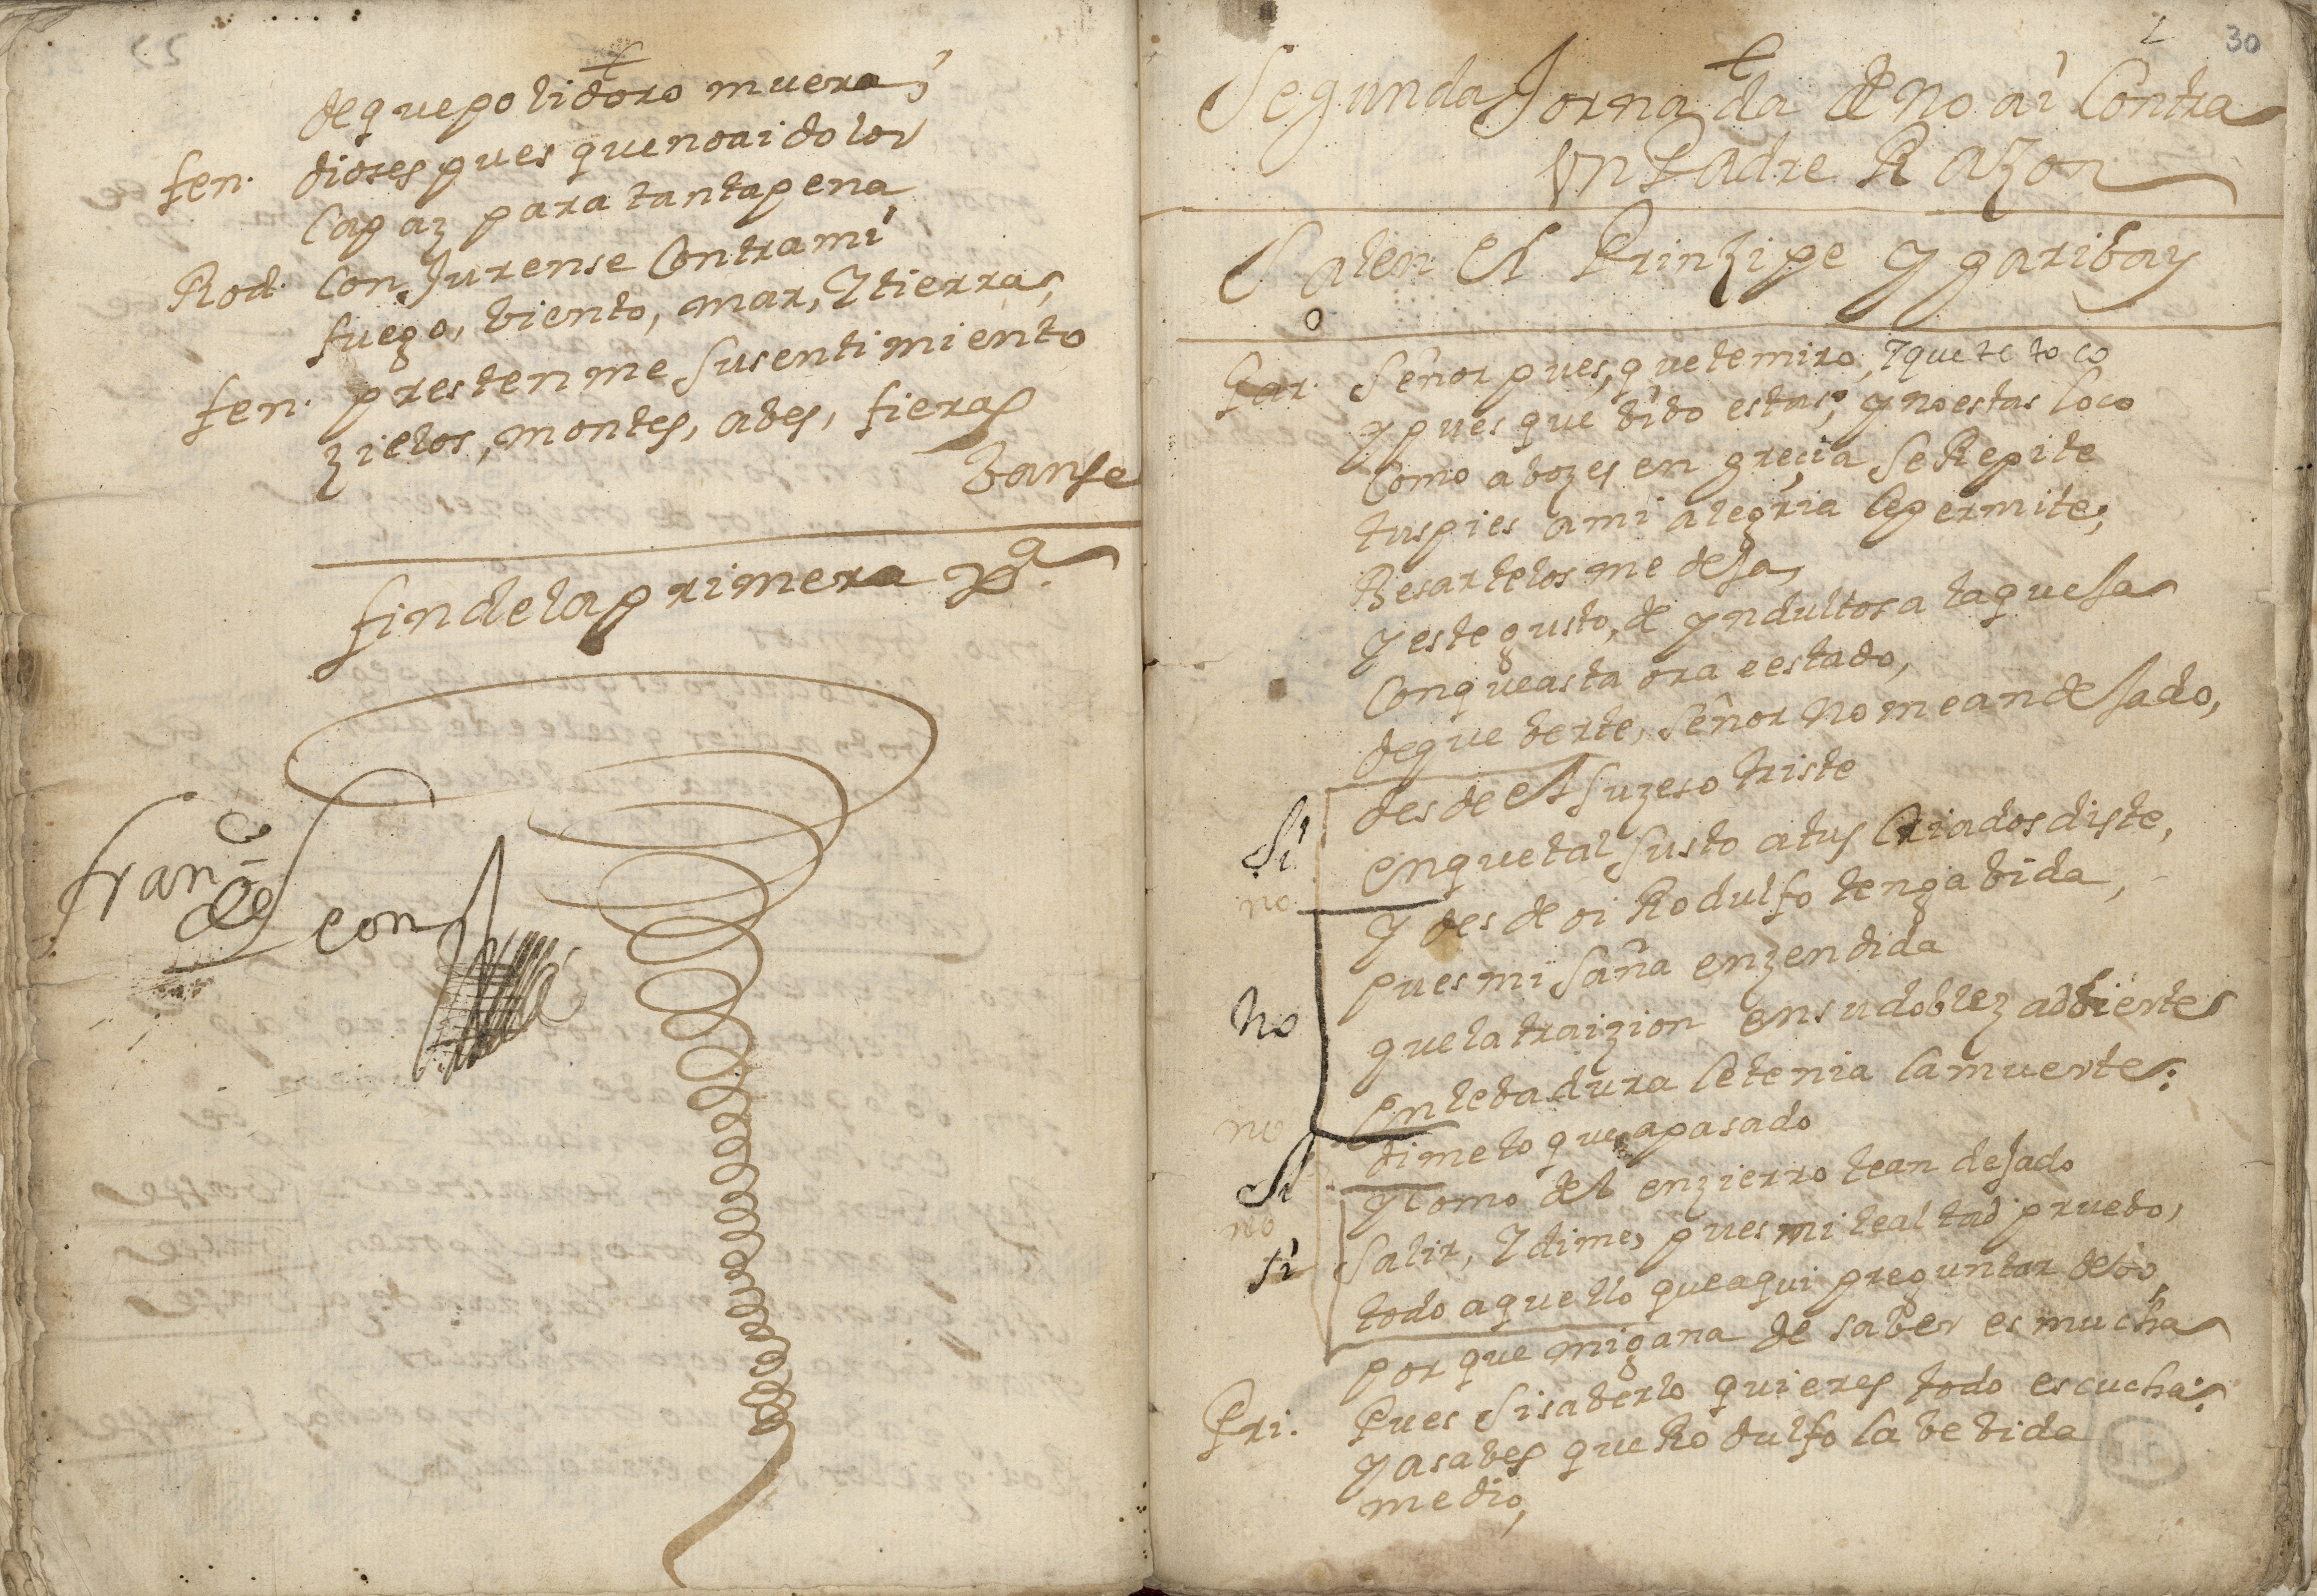 de que polidoro muera;
fen. dioses pues que no ai dolor
Capaz para tanta pena
Rod. Con Jurense Contra mi
fuego, biento, mar, Y tierra,
fen. prestenme su sentimiento
zielos, montes, abes, fieras
Banse
fin de la primera
fran.co de
leon
2 30
Segunda Jornada de No ai Contra
Un Padre Razon
Salen El Prinzipe Y garibay
Gar. Señor pues, que te miro, Y que te toco
y pues que bibo estas; y no estas loco
Como a bozes en grecia se Repite
tus pies a mi alegria le permite;
Besartelos me deja,
y este gusto, de yndultos a la queja
Con que asta ora e estado,
de que berte, Señor No me an dejado,
desde el suzeso triste
Si en que tal susto a tus Criados diste,
no
y desde oi Rodulfo tenga bida,
pues mi saña enzendida
No que la traizion en su doblez adbierte
en lebadura le tenia la muerte:
no dime lo que a pasado
Si y Como del enzierro te an dejado
no Salir, Y dime, pues mi lealtad pruebo,
si todo aquello que aqui preguntar debo,
por que mi gana de saber es mucha
Pri. Pues si saberlo quieres todo escucha:
ya sabes que Rodulfo la bebida
me dio,